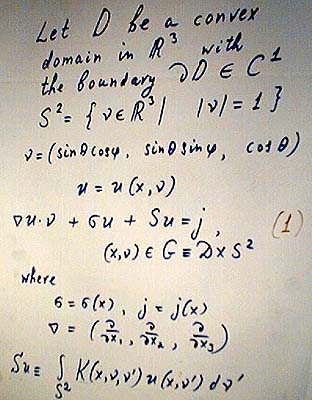 Let D be a convex
domain in R³ with
the boundary ∂D ∈ C¹
S² = { ν ∈ R³ | |ν| = 1 }
ν = (sinθcosφ, sinθsinφ, cosθ)
u = u(x,ν)
∇u·ν + σu + Su = j, (1)
(x,ν) ∈ G ≡ D×S²
where
σ = σ(x), j = j(x)
∇ = (∂/∂x₁, ∂/∂x₂, ∂/∂x₃)
Su ≡ ∫_S² K(x,ν,ν')u(x,ν')dν'